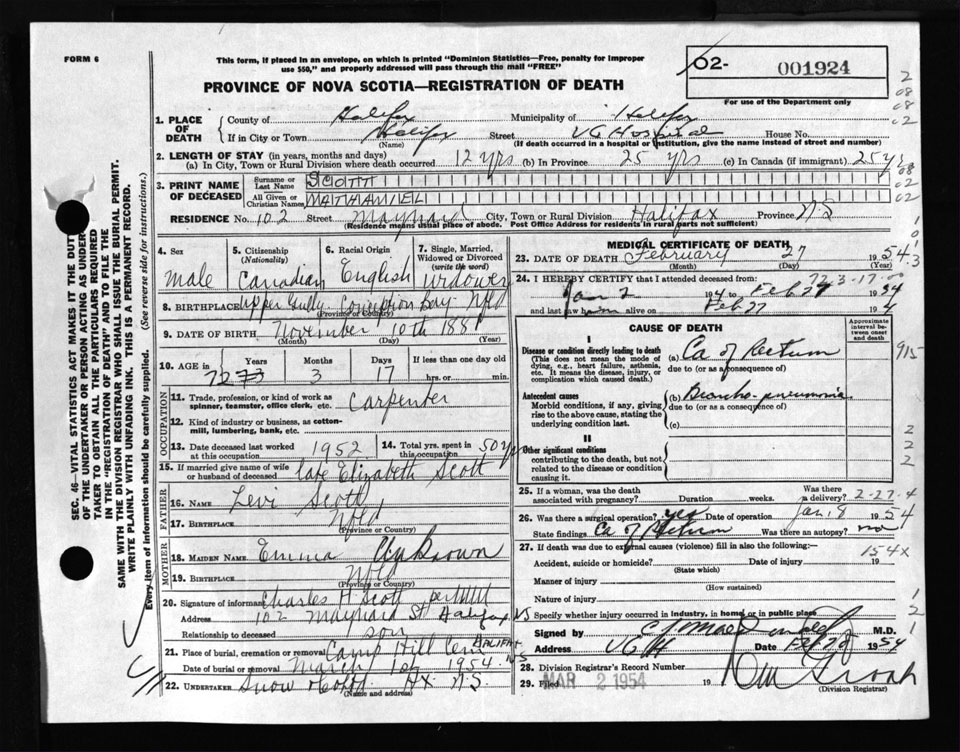 FORM 6
This form, if placed in an envelope, on which is printed "Dominion Statistics—Free, penalty for improper
use $50," and properly addressed will pass through the mail "FREE"
02- 001924
For use of the Department only
PROVINCE OF NOVA SCOTIA—REGISTRATION OF DEATH
1. PLACE OF DEATH
County of Halifax Municipality of Halifax
If in City or Town Halifax Street VG Hospital House No.
(Name) (If death occurred in a hospital or institution, give the name instead of street and number)
2. LENGTH OF STAY (in years, months and days)
(a) In City, Town or Rural Division where death occurred 12 yrs (b) In Province 25 yrs (c) In Canada (if immigrant) 25 yrs
3. PRINT NAME OF DECEASED
Surname or Last Name SCOTT
All Given or Christian Names
RESIDENCE No. 102 Street Maynard City, Town or Rural Division Halifax Province NS
(Residence means usual place of abode. Post Office Address for residents in rural parts not sufficient)
4. Sex Male
5. Citizenship (Nationality) Canadian
6. Racial Origin English
7. Single, Married, Widowed or Divorced (write the word) Widower
8. BIRTHPLACE Upper Gully Conception Bay Nfld
(Province or Country)
9. DATE OF BIRTH November 10th 1881
(Month) (Day) (Year)
10. AGE in Years 72 73 Months 3 Days 17 If less than one day old hrs. or min.
OCCUPATION
11. Trade, profession, or kind of work as spinner, teamster, office clerk, etc. Carpenter
12. Kind of industry or business, as cotton-mill, lumbering, bank, etc.
13. Date deceased last worked at this occupation 1952
14. Total yrs. spent in this occupation 50 yrs
15. If married give name of wife or husband of deceased late Elizabeth Scott
FATHER
16. NAME Levi Scott
17. BIRTHPLACE Nfld
(Province or Country)
MOTHER
18. MAIDEN NAME Emma Unknown
19. BIRTHPLACE Nfld
(Province or Country)
20. Signature of informant Charles H Scott
Address 102 Maynard St Halifax NS
Relationship to deceased son
21. Place of burial, cremation or removal Camp Hill Cem HALIFAX NS
Date of burial or removal March 1st 1954
22. UNDERTAKER Snow & Co Hx N.S.
(Name and address)
MEDICAL CERTIFICATE OF DEATH
23. DATE OF DEATH February 27 1954
(Month) (Day) (Year)
24. I HEREBY CERTIFY that I attended deceased from
Jan 2 to Feb 27 1954
and last saw h alive on Feb 27
CAUSE OF DEATH
Approximate interval between onset and death
I
Disease or condition directly leading to death (a) Ca of Rectum
(This does not mean the mode of dying, e.g., heart failure, asthenia, etc. It means the disease, injury, or complication which caused death.)
due to (or as a consequence of)
Antecedent causes (b) Broncho-pneumonia
Morbid conditions, if any, giving rise to the above cause, stating the underlying condition last.
due to (or as a consequence of)
(c)
II
Other significant conditions
contributing to the death, but not related to the disease or condition causing it.
25. If a woman, was the death associated with pregnancy? Duration weeks. Was there a delivery? 2-27-4
26. Was there a surgical operation? yes Date of operation Jan. 8 1954
State findings Ca of Rectum Was there an autopsy? no
27. If death was due to external causes (violence) fill in also the following: 154X
Accident, suicide or homicide? Date of injury 19
(State which)
Manner of injury
(How sustained)
Nature of injury
Specify whether injury occurred in industry, in home or in public place
Signed by M.D.
Address VGH Date Feb 28 1954
28. Division Registrar's Record Number
29. Filed MAR 2 1954 19
(Division Registrar)
SEC. 46—VITAL STATISTICS ACT MAKES IT THE DUTY
OF THE UNDERTAKER OR PERSON ACTING AS UNDER-
TAKER TO OBTAIN ALL THE PARTICULARS REQUIRED
IN THE "REGISTRATION OF DEATH" AND TO FILE THE
SAME WITH THE DIVISION REGISTRAR WHO SHALL ISSUE THE BURIAL PERMIT.
WRITE PLAINLY WITH UNFADING INK. THIS IS A PERMANENT RECORD.
Every item of information should be carefully supplied. (See reverse side for instructions.)